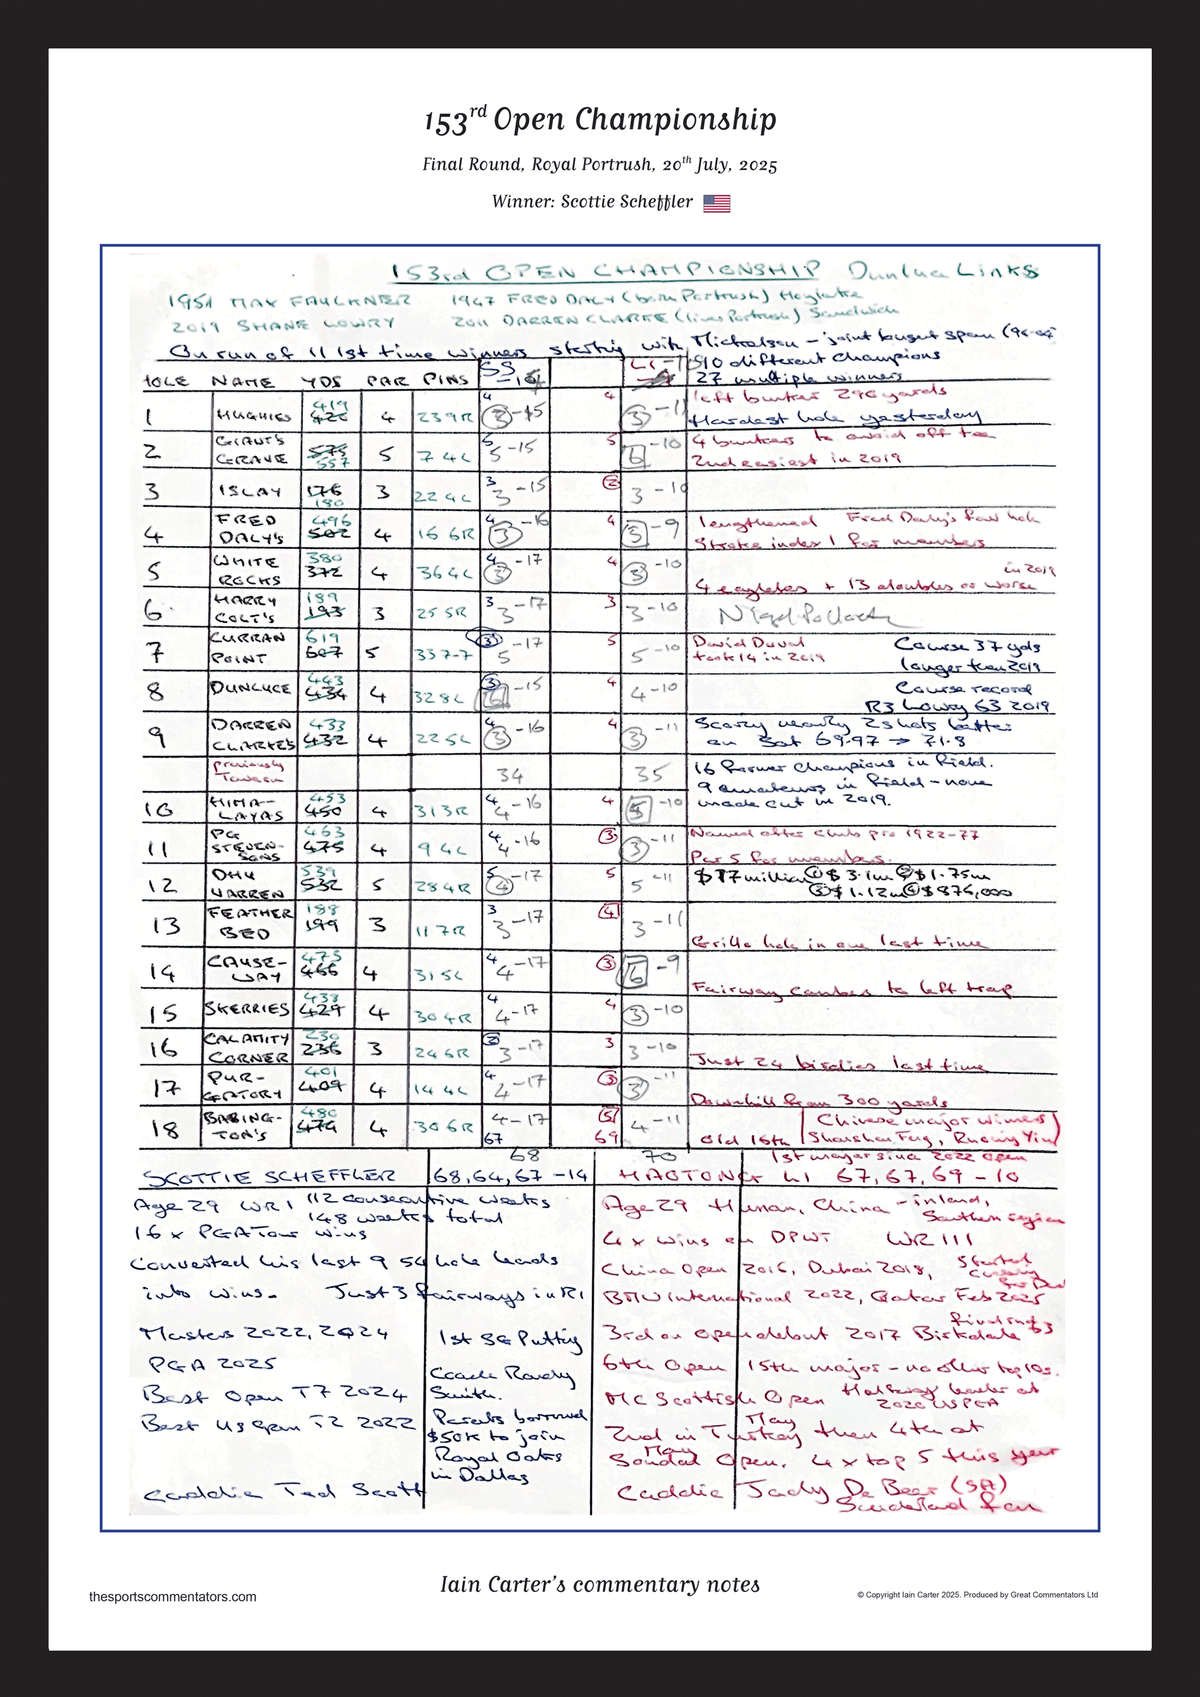 153rd Open Championship
Final Round, Royal Portrush, 20th July, 2025
Winner: Scottie Scheffler
153rd OPEN CHAMPIONSHIP Dunluce Links
1951 MAX FAULKNER 1947 FRED DALY (born Portrush) Hoylake
2019 SHANE LOWRY 2011 DARREN CLARKE (lives Portrush) Sandwich
On run of 11 1st time winners starting with Mickelson - joint longest span
10 different champions
HOLE NAME YDS PAR PINS SS 27 multiple winners
1 HUGHIES 419 426 4 239R 4 3 -15 4 3 -11 left bunker 296 yards
Hardest hole yesterday
2 GIANT'S GRAVE 575 557 5 7 4L 5 5 -15 5 6 -10 4 bunkers to avoid off tee
2nd easiest in 2019
3 ISLAY 176 180 3 22 4L 3 3 -15 2 3 -10
4 FRED DALY'S 496 502 4 16 6R 4 3 -16 4 5 -9 lengthened Fred Daly's fav hole
Stroke index 1 for members
5 WHITE ROCKS 380 372 4 36 4L 4 3 -17 4 3 -10 in 2019
4 eagles + 13 doubles or worse
6 HARRY COLT'S 189 193 3 25 5R 3 3 -17 3 3 -10
7 CURRAN POINT 619 607 5 33 7-7 3 5 -17 5 5 -10 David Duval took 14 in 2019 Course 37 yds
longer than 2019
8 DUNLUCE 443 434 4 32 8L 3 6 -15 4 4 -10 Course record
R3 Lowry 63 2019
9 DARREN CLARKE'S 433 432 4 22 5L 4 3 -16 4 3 -11 Scoring nearly 2 shots better
on Sat 69.97 → 71.8
previously Tavern 34 35 16 former champions in field.
9 amateurs in field - none
10 HIMALAYAS 453 450 4 31 3R 4 4 -16 4 5 -10 made cut in 2019.
11 PG STEVENSONS 463 475 4 9 4L 4 4 -16 3 3 -11 Named after club pro 1922-77
Par 5 for members.
12 DHU VARREN 539 532 5 28 4R 5 4 -17 5 5 -11 $17 million ① $3.1m ② $1.75m
③ $1.12m ④ $876,000
13 FEATHER BED 188 199 3 11 7R 3 3 -17 4 3 -11
Grillo hole in one last time
14 CAUSEWAY 473 466 4 31 5L 4 4 -17 3 6 -9
Fairway cambers to left trap
15 SKERRIES 433 429 4 30 4R 4 4 -17 4 3 -10
16 CALAMITY CORNER 230 236 3 24 6R 2 3 -17 3 3 -10
Just 24 birdies last time
17 PURGATORY 401 409 4 14 4L 4 4 -17 3 3 -11
Downhill from 300 yards
18 BABINGTON'S 480 474 4 30 6R 4 -17 67 5 69 4 -11 Old 16th Chinese major winners
Shanshan Feng, Ruoning Yin
68 70 1st major since 2022 Open
SCOTTIE SCHEFFLER 68, 64, 67 -14 HAOTONG LI 67, 67, 69 -10
Age 29 WR1 112 consecutive weeks
148 weeks total
16 x PGA Tour wins
Converted his last 9 54 hole leads
into wins. Just 3 fairways in R1
Masters 2022, 2024
PGA 2025
Best Open T7 2024
Best US Open T2 2022
Caddie Ted Scott
1st SG Putting
Coach Randy
Smith.
Parents borrowed
$50K to join
Royal Oaks
in Dallas
Age 29 Hunan, China - inland,
Southern region
4 x wins on DPWT WR 111
China Open 2016, Dubai 2018, Started
BMW International 2022, Qatar Feb 2025
3rd on Open debut 2017 Birkdale Final rnd 63
6th Open 15th major - no other top 10s.
MC Scottish Open Halfway leader at
2020 USPGA
2nd in Turkey May then 4th at
Soudal May Open. 4 x top 5 this year
Caddie Jady De Beer (SA)
Sunderland fan
Iain Carter's commentary notes
thesportscommentators.com
© Copyright Iain Carter 2025. Produced by Great Commentators Ltd